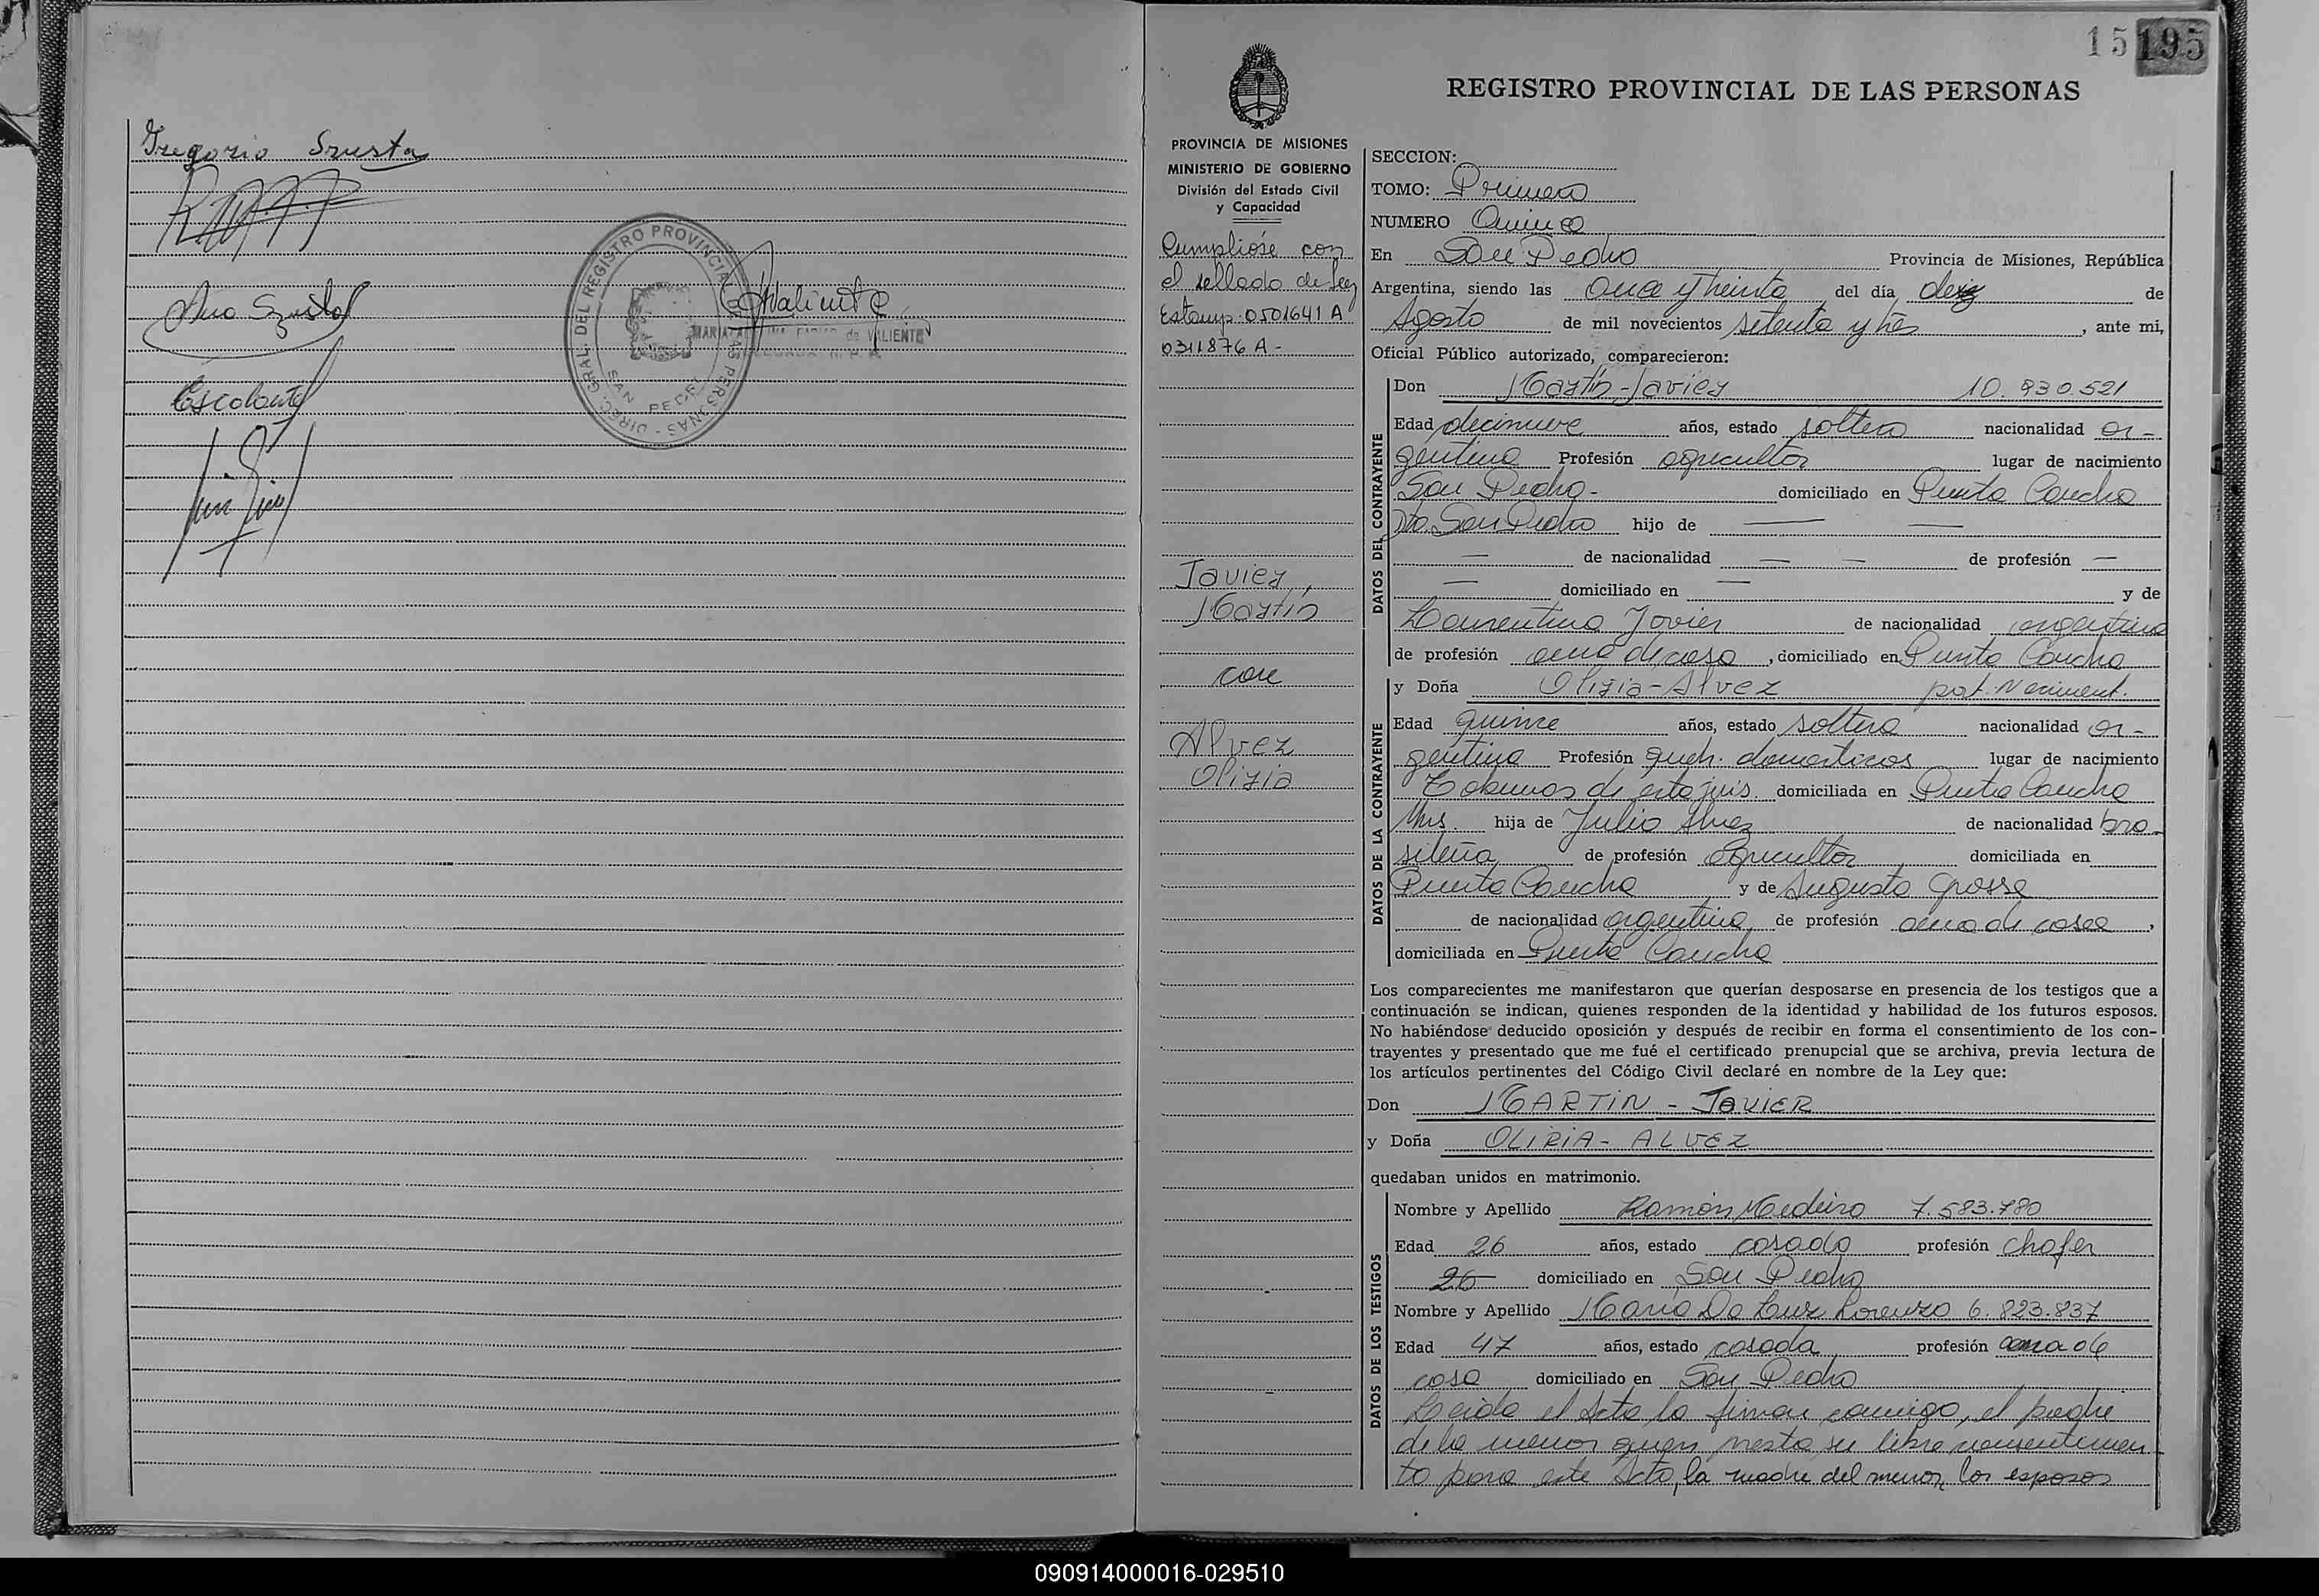 Gregorio Szusta
Ana Szusta
Escalante
DIREC. GRAL. DEL REGISTRO PROVINCIAL DE LAS PERSONAS - SAN PEDRO
Valiente
MARIA de VALIENTE
15 195
REGISTRO PROVINCIAL DE LAS PERSONAS
PROVINCIA DE MISIONES
MINISTERIO DE GOBIERNO
División del Estado Civil
y Capacidad
Cumplióse con
el sellado de Ley
Estamp: 0501641 A
0311876 A -
Javier,
Martín
con
Alvez
Oliria
SECCION:
TOMO: Primero
NUMERO Quince
En San Pedro Provincia de Misiones, República
Argentina, siendo las once y treinta del día diez de
Agosto de mil novecientos setenta y tres, ante mi,
Oficial Público autorizado, comparecieron:
DATOS DEL CONTRAYENTE
Don Martín - Javier 10.930.521
Edad diecinueve años, estado soltero nacionalidad ar-
gentina Profesión agricultor lugar de nacimiento
San Pedro - domiciliado en Punta Cancha
Dto. San Pedro hijo de —— ——
— de nacionalidad — — de profesión —
— domiciliado en — y de
Laurentina Javier de nacionalidad argentina
de profesión ama de casa, domiciliado en Punta Cancha
DATOS DE LA CONTRAYENTE
y Doña Oliria - Alvez part. Neciment.
Edad quince años, estado soltera nacionalidad ar-
gentina Profesión queh. domesticos lugar de nacimiento
Tobunas de esta juris. domiciliada en Punta Cancha
Mns. hija de Julio Alvez de nacionalidad bra-
sileña de profesión Agricultor domiciliada en
Punta Cancha y de Augusta Grosse
de nacionalidad argentina, de profesión ama de casa,
domiciliada en Punta Cancha
Los comparecientes me manifestaron que querían desposarse en presencia de los testigos que a
continuación se indican, quienes responden de la identidad y habilidad de los futuros esposos.
No habiéndose deducido oposición y después de recibir en forma el consentimiento de los con-
trayentes y presentado que me fué el certificado prenupcial que se archiva, previa lectura de
los artículos pertinentes del Código Civil declaré en nombre de la Ley que:
Don MARTIN - JAVIER
y Doña OLIRIA - ALVEZ
quedaban unidos en matrimonio.
DATOS DE LOS TESTIGOS
Nombre y Apellido Ramón Medeiro 7.583.780
Edad 26 años, estado casado profesión chofer
26 domiciliado en San Pedro
Nombre y Apellido María Da Cruz Lorenzo 6.823.837
Edad 47 años, estado casada profesión ama de
casa domiciliado en San Pedro
Leida el Acta la firman conmigo, el padre
de la menor quien presta su libre consentimien-
to para este Acto, la madre del menor, los esposos
090914000016-029510